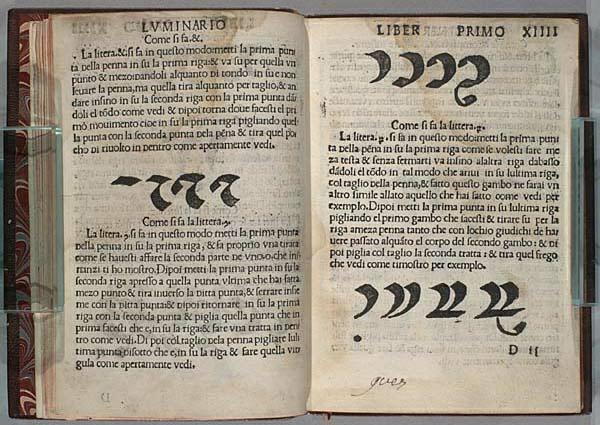 LVMINARIO
Come si fa.&.
La litera.&.si fa in questo modo:metti la prima pun
ta della penna in su la prima riga& va su per quella vn
punto & mezo:dandoli alquanto di tondo in su:e non
leuare la penna, ma quella tira alquanto per taglio,& an
dare insino in su la seconda riga con la prima punta dā
doli el tōdo come vedi & dipoi torna doue facesti el pri
mo mouimento cioe in su la prima riga pigliando quel
la punta con la seconda punta dela pēna & tira quel
cho di riuolto in dentro come apertamente vedi.
Come si fa la littera.
La litera. si fa in questo modo metti la prima punta
della penna in su la prima riga, & fa proprio vna tirata
come se hauesti affare la seconda parte de vnovo, che in
nanzi ti ho mostro. Dipoi metti la prima punta in su la
seconda riga apresso a quella punta vltima che hai fatta
mezo punto & tira inuerso la ditta punta, & serrare insie
me con la ditta punta:& dipoi ritornare in su la prima
riga con la seconda punta & piglia quella punta che in
prima facesti che e, in su la riga:& fare vna tratta in den
tro come vedi. Di poi col taglio dela penna pigliare lul
tima punta disotto che e, in su la riga & fare quella vir
gula come apertamente vedi.
LIBER PRIMO XIIII
Come si fa la littera.
La litera. si fa in questo modo:metti la prima pun
ta della pēna in su la prima riga come se volesti fare me
za testa & senza fermarti va insino alaltra riga dabasso
dādoli el tōdo in tal modo che ariui in su lultima riga,
col taglio della penna, & fatto questo gambo ne farai vn
altro simile allato aquello che hai fatto come vedi per
exemplo. Dipoi metti la prima punta in su lultima riga
pigliando el primo gambo che facesti & tirare su per la
riga ameza penna tanto che con lochio giudichi de ha
uere passato alquāto el corpo del secondo gambo: & di
poi piglia col taglio la seconda tratta : & tira quel frego
che vedi come timostro per exemplo.
D ii